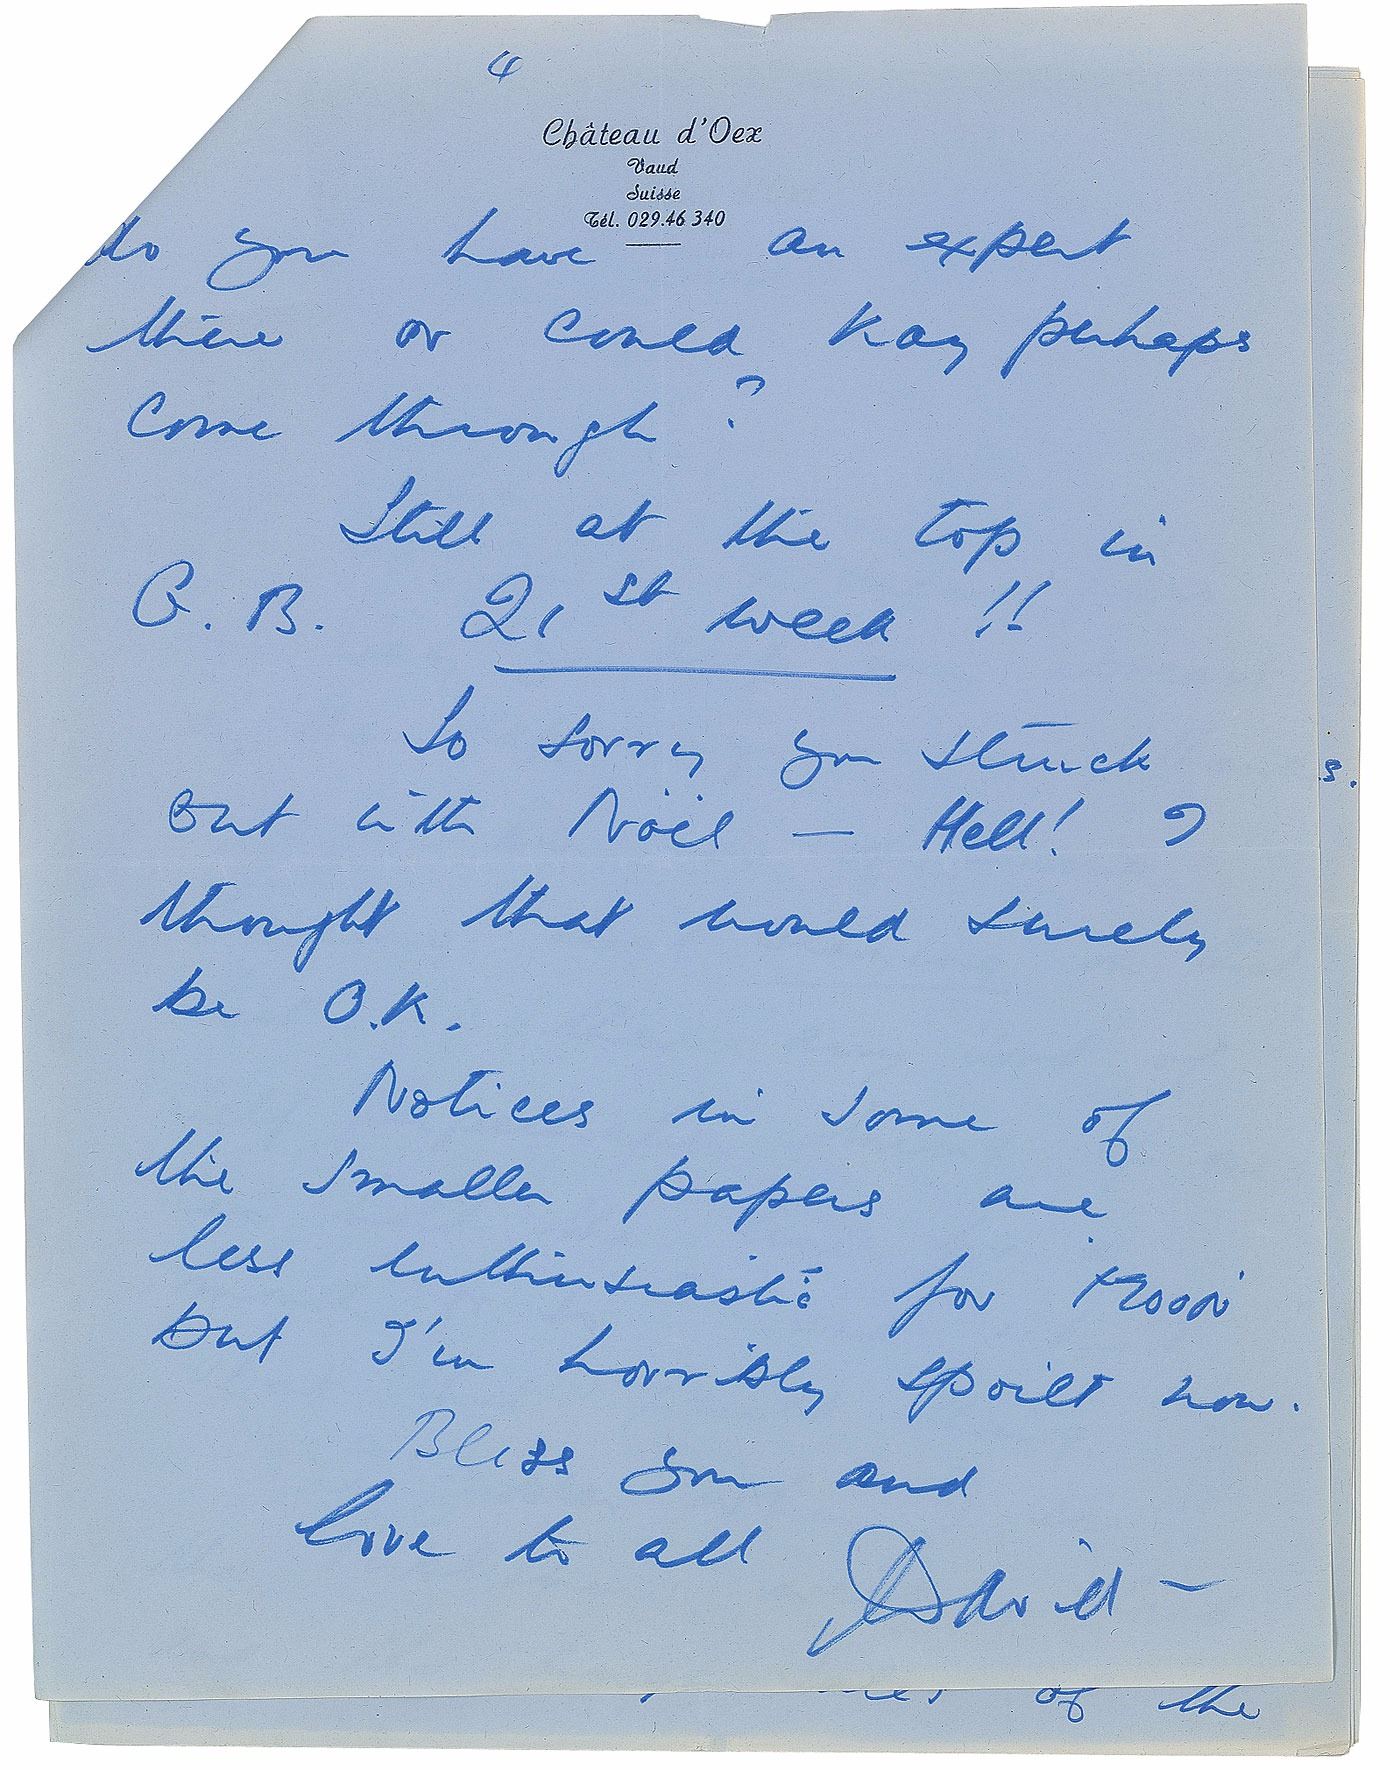 4
Château d'Oex
Vaud
Suisse
Tél. 029.46 340
do you have an expert
there or could Kay perhaps
come through?
Still at the top in
G.B. 21st week!!
So sorry you struck
out with Nöel — Hell! I
thought that would surely
be O.K.
Notices in some of
the smaller papers are
less enthusiastic for 'Moon'
but I'm horribly spoilt now.
Bless you and
love to all David —
s.
of the